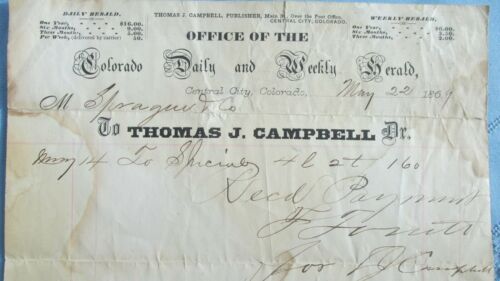 DAILY HERALD.
One Year, $16.00
Six Months, 9.00
Three Months, 5.00
Per Week, (delivered by carrier) 50.
THOMAS J. CAMPBELL, PUBLISHER, Main St., Over the Post Office,
CENTRAL CITY, COLORADO.
WEEKLY HERALD,
One Year,
Six Months, 3.50
Three Months, 2.00
OFFICE OF THE
Colorado Daily and Weekly Herald,
Central City, Colorado, May 22 1869
M Sprague & Co
To THOMAS J. CAMPBELL Dr.
May 14 To Specials 4l 2t 160
Recd Payment
for T J Campbell